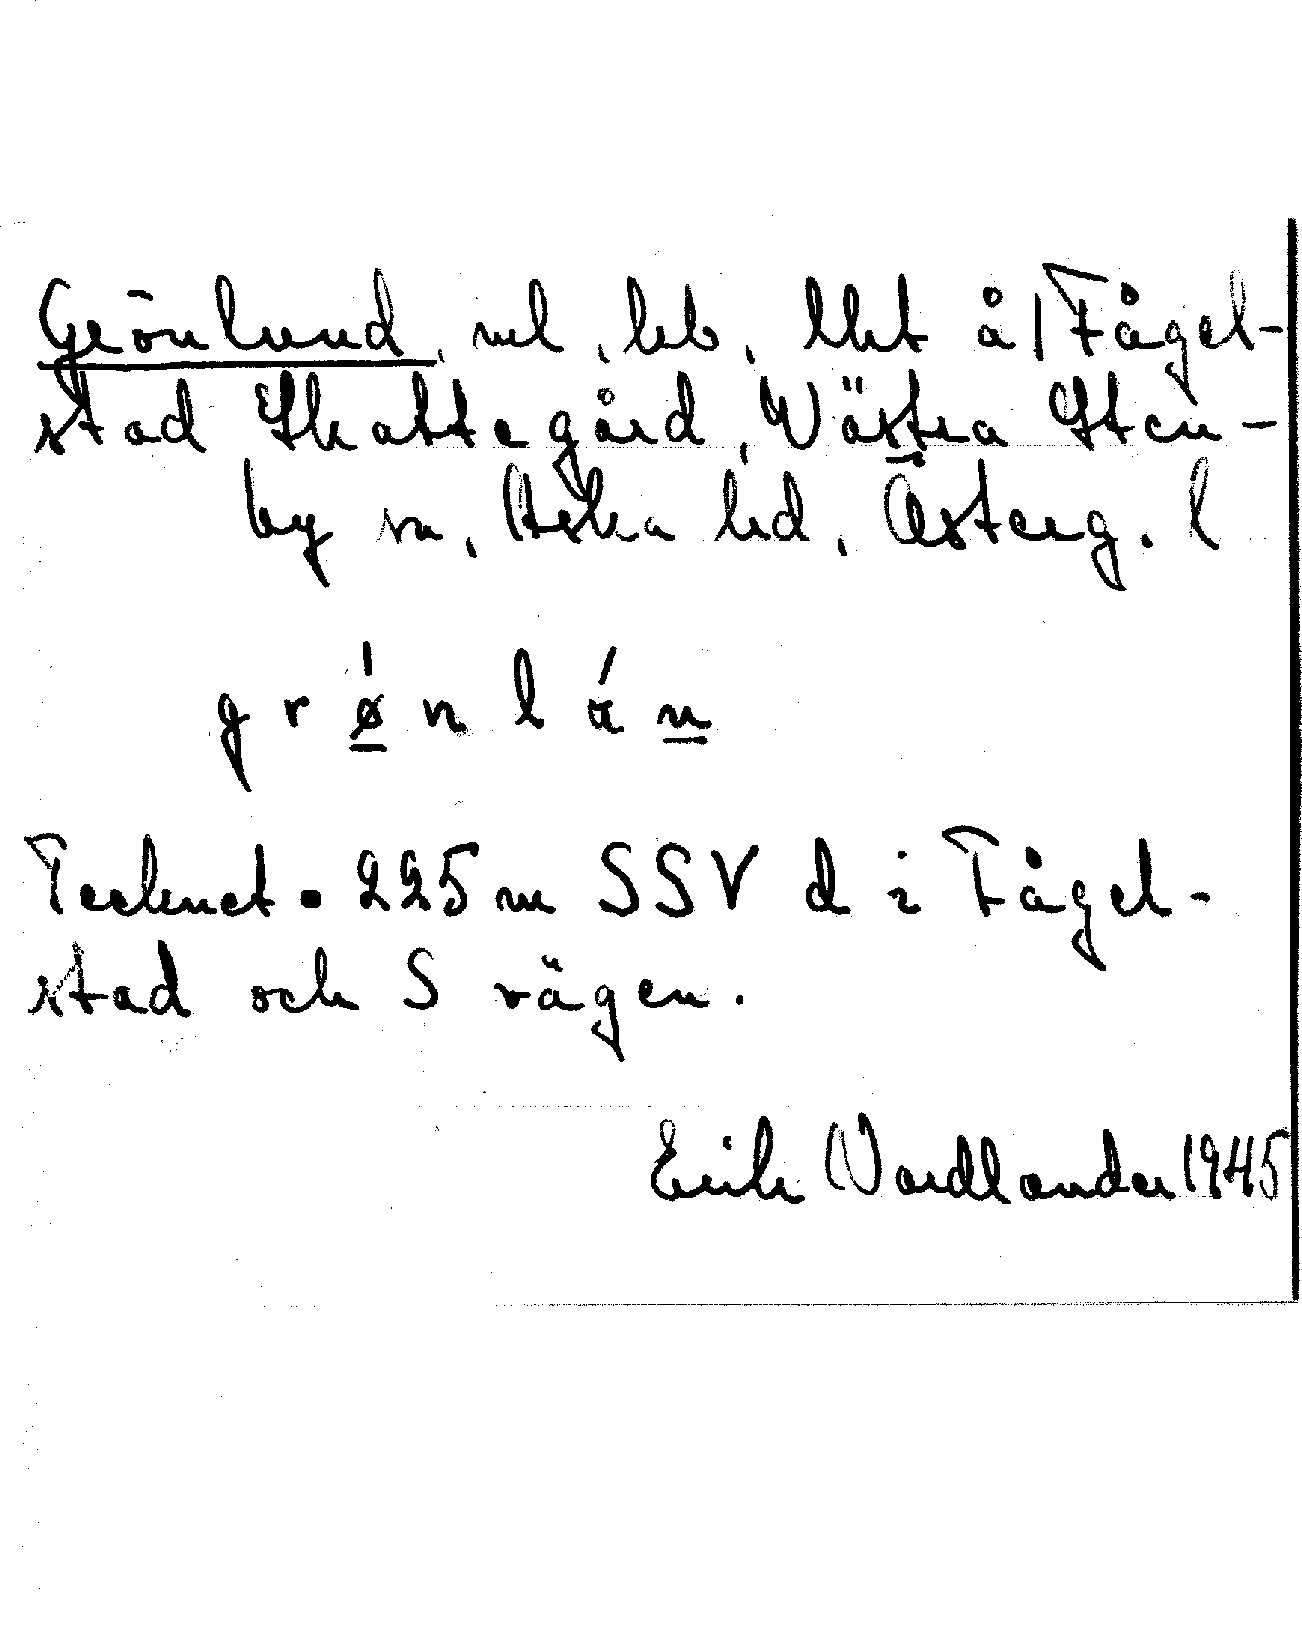 Grönlund, ml, beb, lht å/ Fågel-
stad Skattegård, Västra Sten-
by sn, Aska hd, Österg. l
grǿnlán
Tecknet ▪ 225 m SSV d i Fågel-
stad och S vägen.
Erik Nordlander 1945